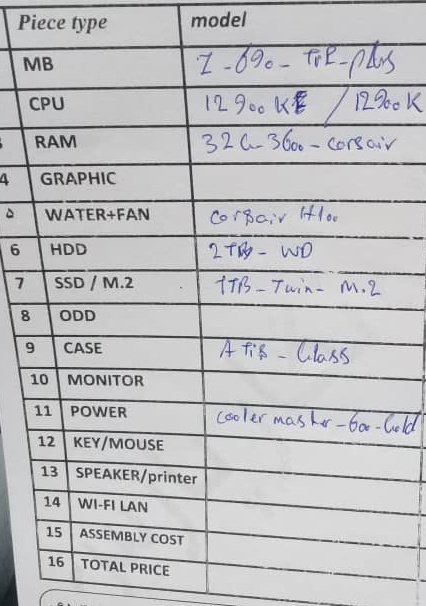 Piece type model
MB Z-690-TUF-plus
CPU 12900KF / 12900K
RAM 32G-3600-corsair
4 GRAPHIC
۵ WATER+FAN Corsair H100
6 HDD 2TB-WD
7 SSD / M.2 1TB-Twin-M.2
8 ODD
9 CASE ATiS-Glass
10 MONITOR
11 POWER cooler master-600-Gold
12 KEY/MOUSE
13 SPEAKER/printer
14 WI-FI LAN
15 ASSEMBLY COST
16 TOTAL PRICE